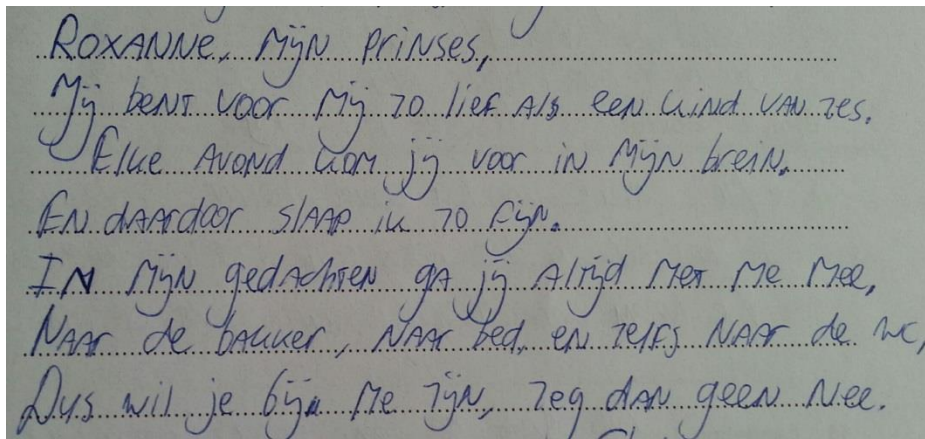 Roxanne, mijn prinses,
Jij bent voor mij zo lief als een kind van zes.
Elke avond kom jij voor in mijn brein.
En daardoor slaap ik zo fijn.
In mijn gedachten ga jij altijd met me mee,
Naar de bakker, naar bed, en zelfs naar de wc,
Dus wil je bij me zijn, zeg dan geen nee.